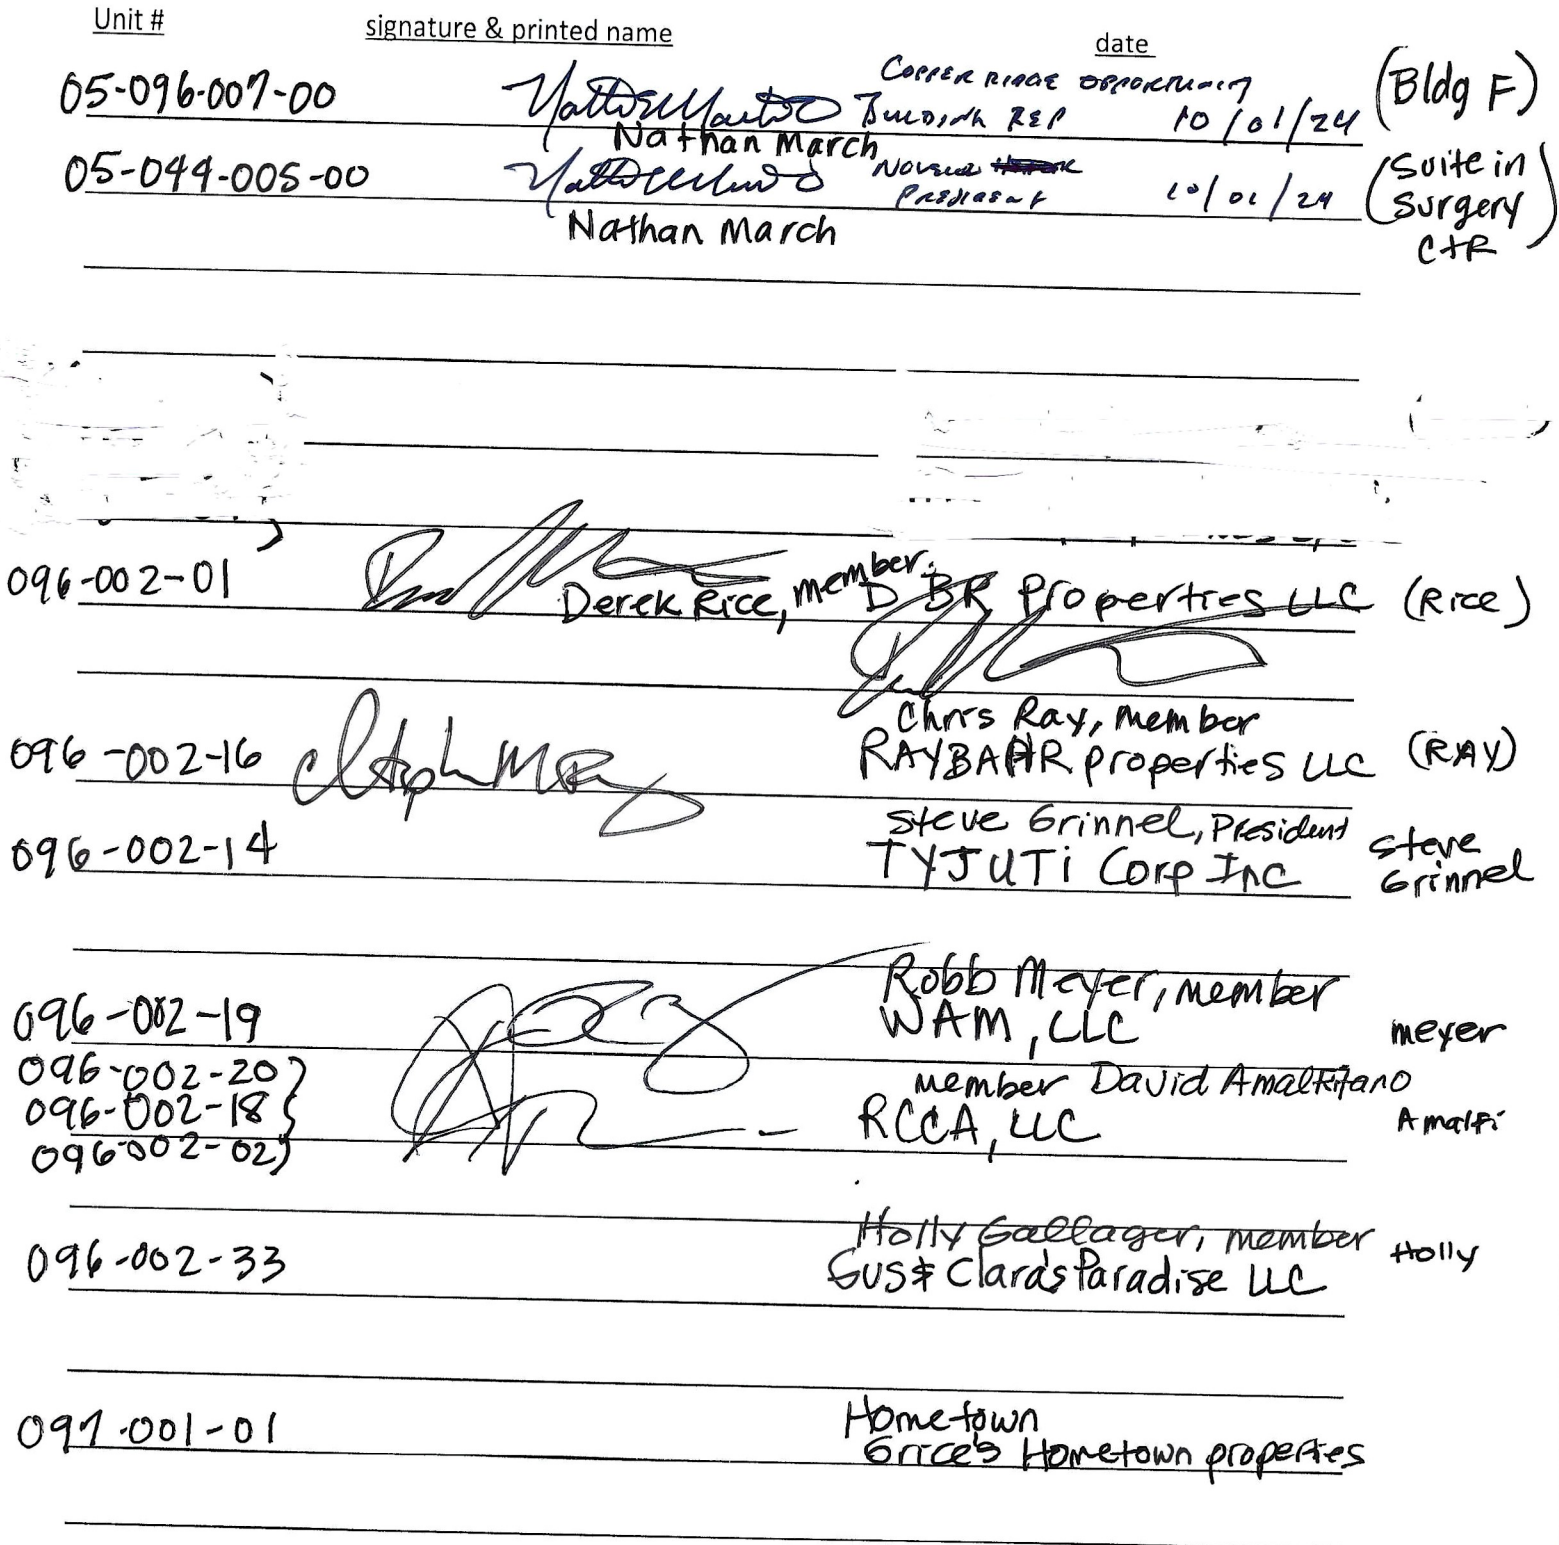 Unit # signature & printed name date
05-096-007-00 COPPER RIDGE OPPORTUNITY (Bldg F)
BUILDING REP 10/01/24
Nathan March
05-044-005-00 PRESIDENT 10/01/24 (Suite in Surgery CtR)
Nathan March
096-002-01 Derek Rice, member. D BR Properties LLC (Rice)
Chris Ray, member
096-002-16 RAYBAHR properties LLC (RAY)
Steve Grinnel, President
096-002-14 TYJUTi Corp Inc Steve Grinnel
Robb Meyer, member
096-002-19 WAM, LLC meyer
096-002-20 member David Amalfitano
096-002-18 RCCA, LLC Amalfi
096-002-02
Holly Gallager, member Holly
096-002-33 Gus & Clara's Paradise LLC
Hometown
097-001-01 Grice's Hometown properties